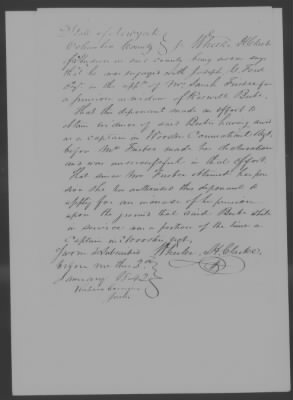 State of New York
Columbia County } ss Wheeler H. Clarke
of Hudson in said county being sworn says
that he was engaged with Joseph G. Ford
Esq. in the appn of Mrs Sarah Foster for
a pension as widow of Roswell Beebe
That the deponent made an effort to
obtain evidence of said Beebe having served
as a Captain in Connecticut Regt
before Mrs Foster made her declaration
and was unsuccessful in that effort
That since Mrs Foster obtained her pen-
sion she has authorised this deponent to
apply for an increase of her pension
upon the ground that said Beebe while
in service was a portion of the time a
Captain in
Sworn & subscribed Wheeler H. Clarke
before me this 3d
January 1842